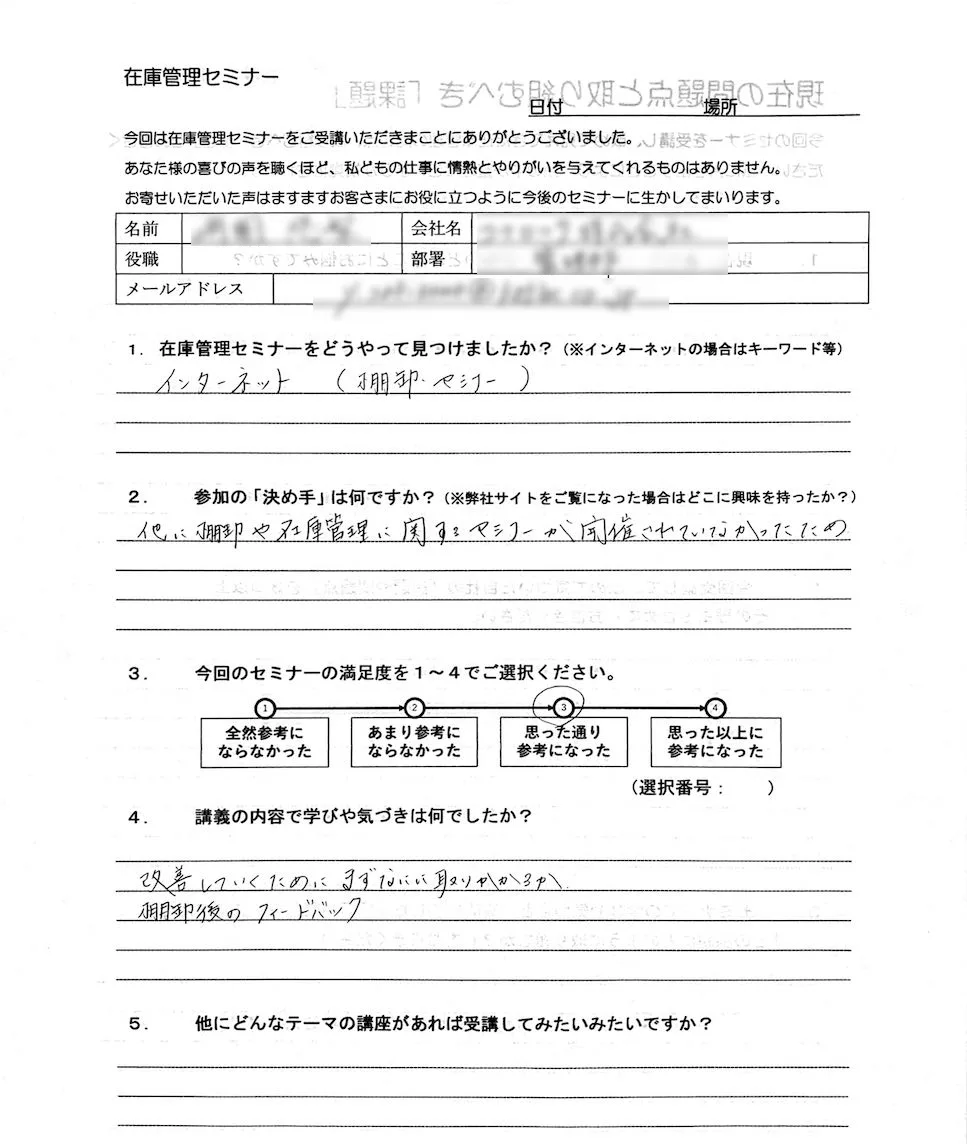 在庫管理セミナー
日付 場所
今回は在庫管理セミナーをご受講いただきまことにありがとうございました。
あなた様の喜びの声を聴くほど、私どもの仕事に情熱とやりがいを与えてくれるものはありません。
お寄せいただいた声はますますお客さまにお役に立つように今後のセミナーに生かしてまいります。
名前 会社名
役職 部署
メールアドレス
1. 在庫管理セミナーをどうやって見つけましたか？（※インターネットの場合はキーワード等）
インターネット （棚卸・セミナー）
２． 参加の「決め手」は何ですか？（※弊社サイトをご覧になった場合はどこに興味を持ったか？）
他に棚卸や在庫管理に関するセミナーが開催されていなかったため
３． 今回のセミナーの満足度を１～４でご選択ください。
1 2 3 4
全然参考に あまり参考に 思った通り 思った以上に
ならなかった ならなかった 参考になった 参考になった
（選択番号： ）
４． 講義の内容で学びや気づきは何でしたか？
改善していくためにまずなにに取りかかるか
棚卸後のフィードバック
５． 他にどんなテーマの講座があれば受講してみたいみたいですか？